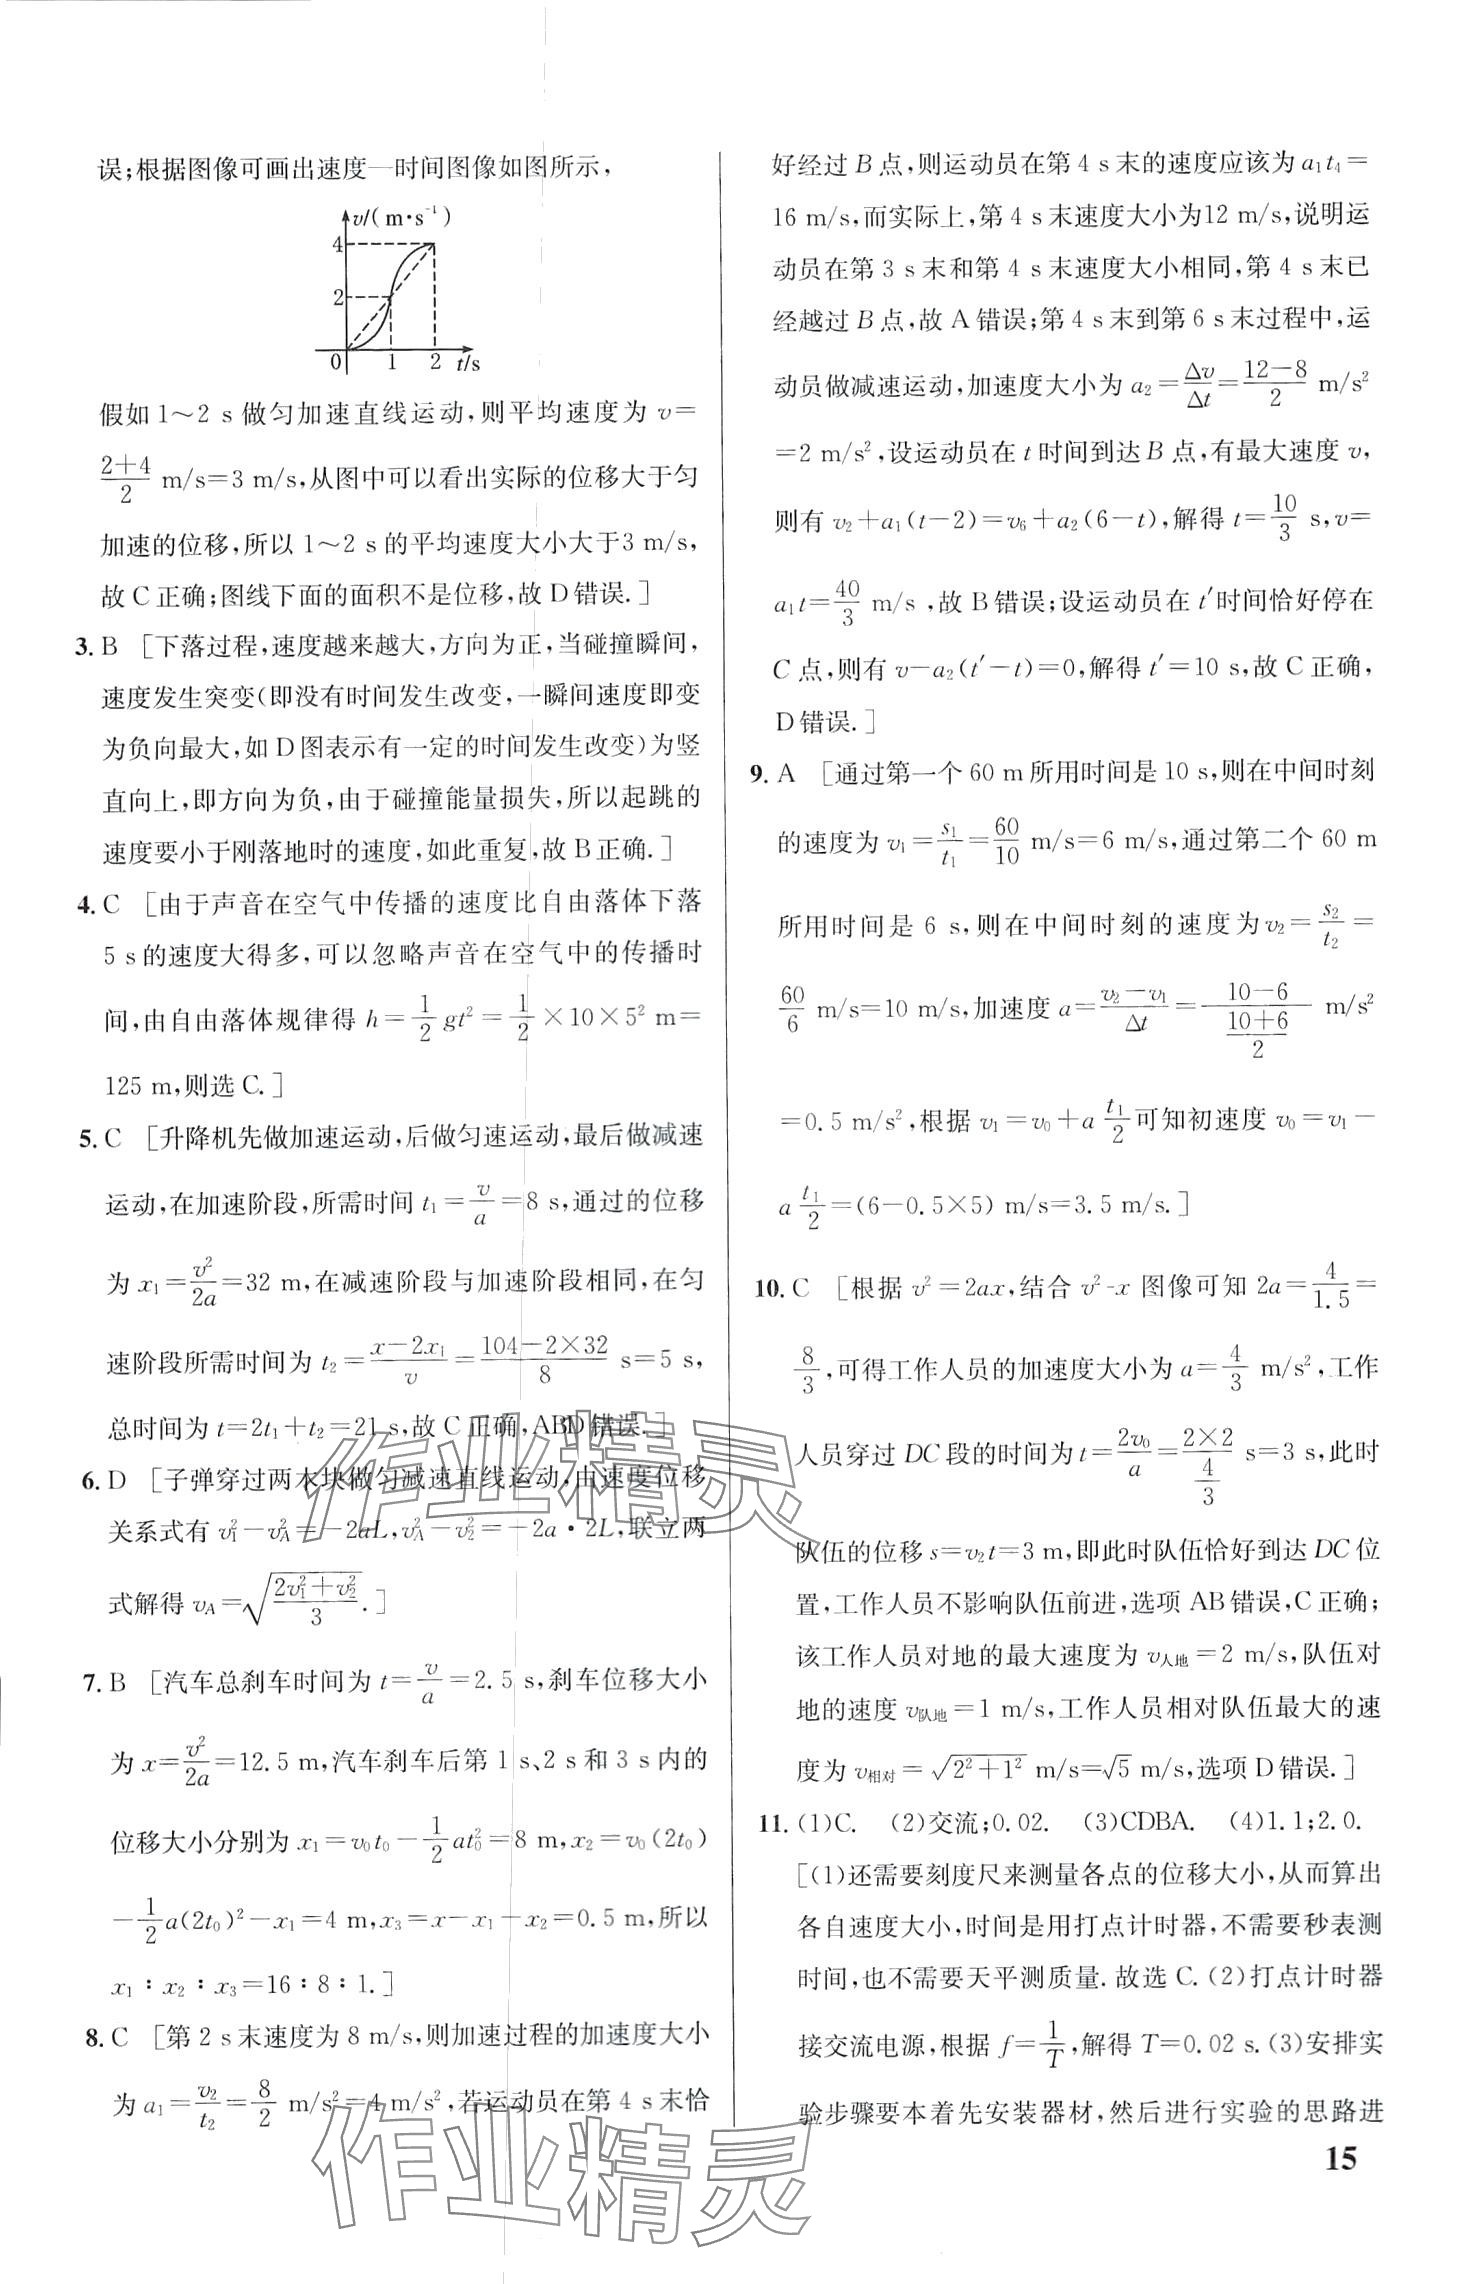 误;根据图像可画出速度—时间图像如图所示,
v/(m·s⁻¹)
4
2
0 1 2 t/s
假如1～2 s做匀加速直线运动,则平均速度为 v=
(2+4)/2 m/s=3 m/s,从图中可以看出实际的位移大于匀
加速的位移,所以1～2 s的平均速度大小大于3 m/s,
故C正确;图线下面的面积不是位移,故D错误.]
3. B [下落过程,速度越来越大,方向为正,当碰撞瞬间,
速度发生突变(即没有时间发生改变,一瞬间速度即变
为负向最大,如D图表示有一定的时间发生改变)为竖
直向上,即方向为负,由于碰撞能量损失,所以起跳的
速度要小于刚落地时的速度,如此重复,故B正确.]
4. C [由于声音在空气中传播的速度比自由落体下落
5 s的速度大得多,可以忽略声音在空气中的传播时
间,由自由落体规律得 h=1/2 gt²=1/2×10×5² m=
125 m,则选C.]
5. C [升降机先做加速运动,后做匀速运动,最后做减速
运动,在加速阶段,所需时间 t₁=v/a=8 s,通过的位移
为 x₁=v²/2a=32 m,在减速阶段与加速阶段相同,在匀
速阶段所需时间为 t₂=(x−2x₁)/v=(104−2×32)/8 s=5 s,
总时间为 t=2t₁+t₂=21 s,故C正确,ABD错误.]
6. D [子弹穿过两木块做匀减速直线运动,由速度位移
关系式有 v₁²−v_A²=−2aL,v_A²−v₂²=−2a·2L,联立两
式解得 v_A=√((2v₁²+v₂²)/3).]
7. B [汽车总刹车时间为 t=v/a=2.5 s,刹车位移大小
为 x=v²/2a=12.5 m,汽车刹车后第1 s、2 s和3 s内的
位移大小分别为 x₁=v₀t₀−1/2 at₀²=8 m,x₂=v₀(2t₀)
−1/2 a(2t₀)²−x₁=4 m,x₃=x−x₁−x₂=0.5 m,所以
x₁∶x₂∶x₃=16∶8∶1.]
8. C [第2 s末速度为8 m/s,则加速过程的加速度大小
为 a₁=v₂/t₂=8/2 m/s²=4 m/s²,若运动员在第4 s末恰
好经过B点,则运动员在第4 s末的速度应该为 a₁t₄=
16 m/s,而实际上,第4 s末速度大小为12 m/s,说明运
动员在第3 s末和第4 s末速度大小相同,第4 s末已
经越过B点,故A错误;第4 s末到第6 s末过程中,运
动员做减速运动,加速度大小为 a₂=Δv/Δt=(12−8)/2 m/s²
=2 m/s²,设运动员在 t 时间到达B点,有最大速度 v,
则有 v₂+a₁(t−2)=v₆+a₂(6−t),解得 t=10/3 s,v=
a₁t=40/3 m/s,故B错误;设运动员在 t′时间恰好停在
C点,则有 v−a₂(t′−t)=0,解得 t′=10 s,故C正确,
D错误.]
9. A [通过第一个60 m所用时间是10 s,则在中间时刻
的速度为 v₁=s₁/t₁=60/10 m/s=6 m/s,通过第二个60 m
所用时间是6 s,则在中间时刻的速度为 v₂=s₂/t₂=
60/6 m/s=10 m/s,加速度 a=(v₂−v₁)/Δt=(10−6)/((10+6)/2) m/s²
=0.5 m/s²,根据 v₁=v₀+a t₁/2 可知初速度 v₀=v₁−
a t₁/2=(6−0.5×5) m/s=3.5 m/s.]
10. C [根据 v²=2ax,结合 v²-x 图像可知 2a=4/1.5=
8/3,可得工作人员的加速度大小为 a=4/3 m/s²,工作
人员穿过DC段的时间为 t=2v₀/a=(2×2)/(4/3) s=3 s,此时
队伍的位移 s=v₂t=3 m,即此时队伍恰好到达DC位
置,工作人员不影响队伍前进,选项AB错误,C正确;
该工作人员对地的最大速度为 v人地=2 m/s,队伍对
地的速度 v队地=1 m/s,工作人员相对队伍最大的速
度为 v相对=√(2²+1²) m/s=√5 m/s,选项D错误.]
11. (1)C. (2)交流;0.02. (3)CDBA. (4)1.1;2.0.
[(1)还需要刻度尺来测量各点的位移大小,从而算出
各自速度大小,时间是用打点计时器,不需要秒表测
时间,也不需要天平测质量.故选C.(2)打点计时器
接交流电源,根据 f=1/T,解得 T=0.02 s.(3)安排实
验步骤要本着先安装器材,然后进行实验的思路进
15
作业精灵
作业精灵